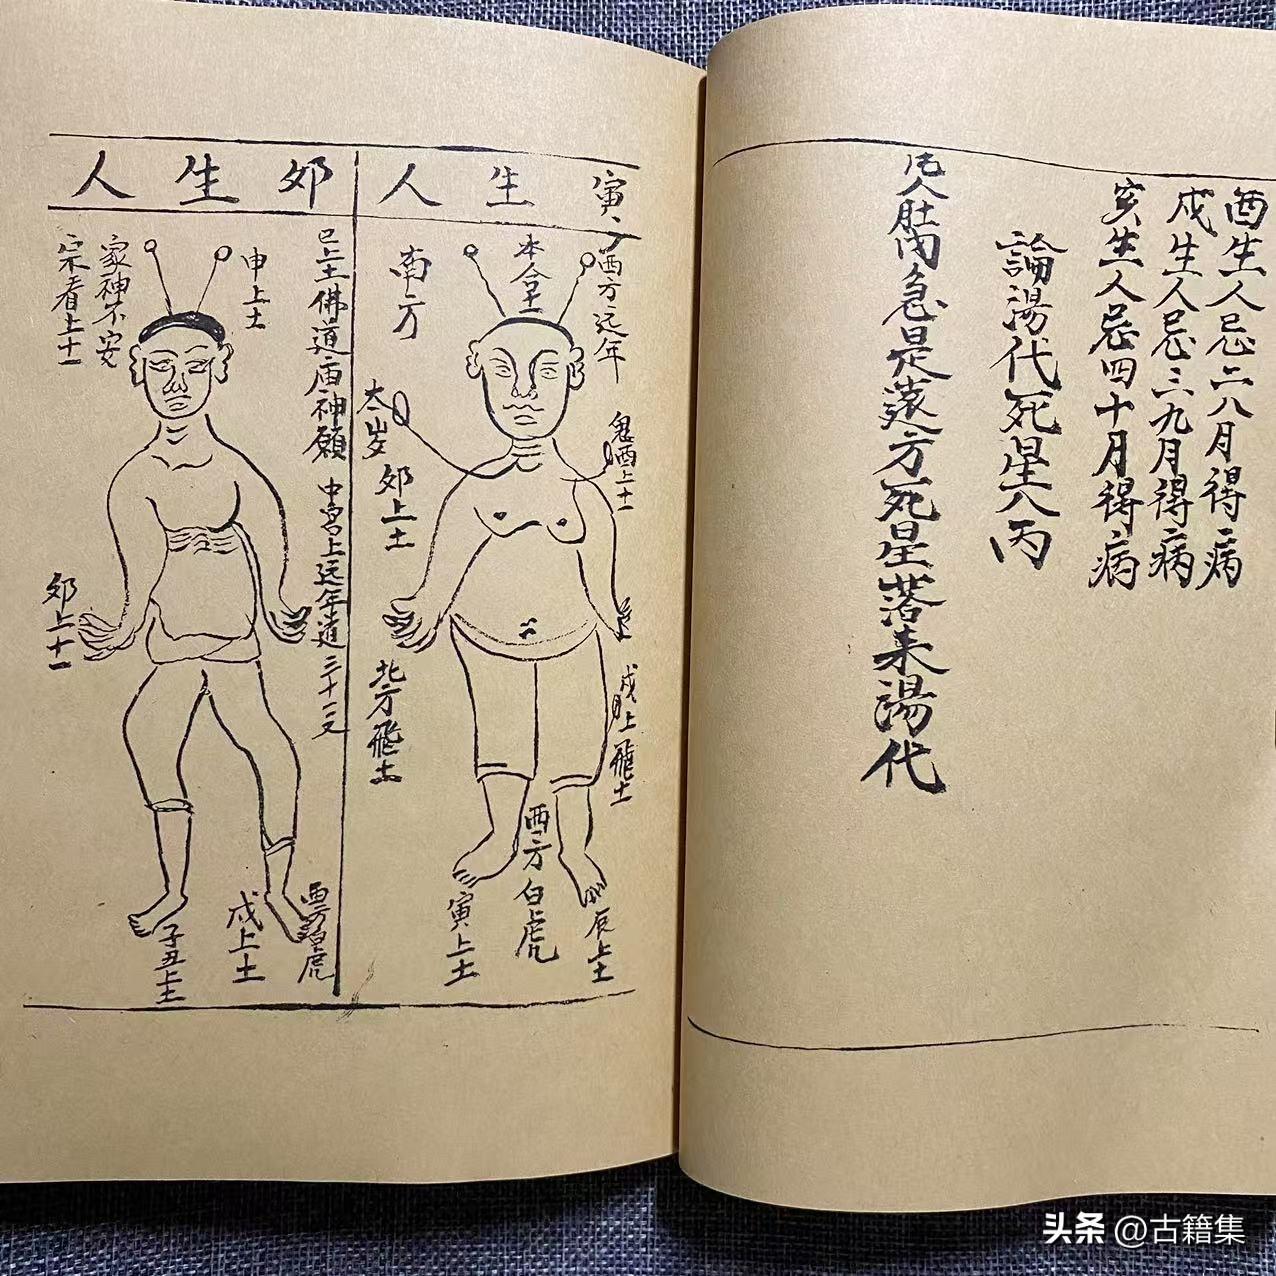 酉生人忌二八月得病
戌生人忌三九月得病
亥生人忌四十月得病
論湯代死星八丙
凡人肚内急是遠方死星落来湯代
寅生人
西方远年
本倉土
南方
太岁
卯上土
鬼酉上十一
北方飛土
戌月上飛土
西方白虎
寅上土
辰上土
卯生人
巳上土佛道庙神願
中宫上远年道
申上土
家神不安
宗看上十一
卯上十一
戌上土
子丑上土
头条 @古籍集